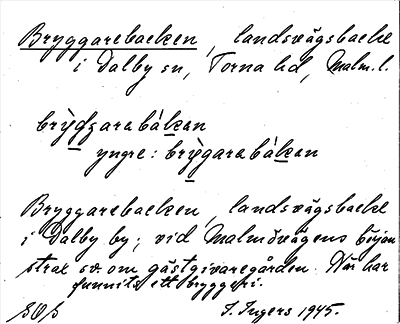 Bryggarebacken, landsvägsbacke
i Dalby sn, Torna hd, Malm. l.
brỳdgarabákan
yngre: brỳgarabákan
Bryggarebacken, landsvägsbacke
i Dalby by; vid Malmövägens början
strax sv. om gästgivaregården. Här har
funnits ett bryggeri.
I. Ingers 1945.